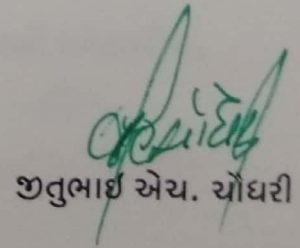 જીતુભાઈ એચ. ચૌધરી